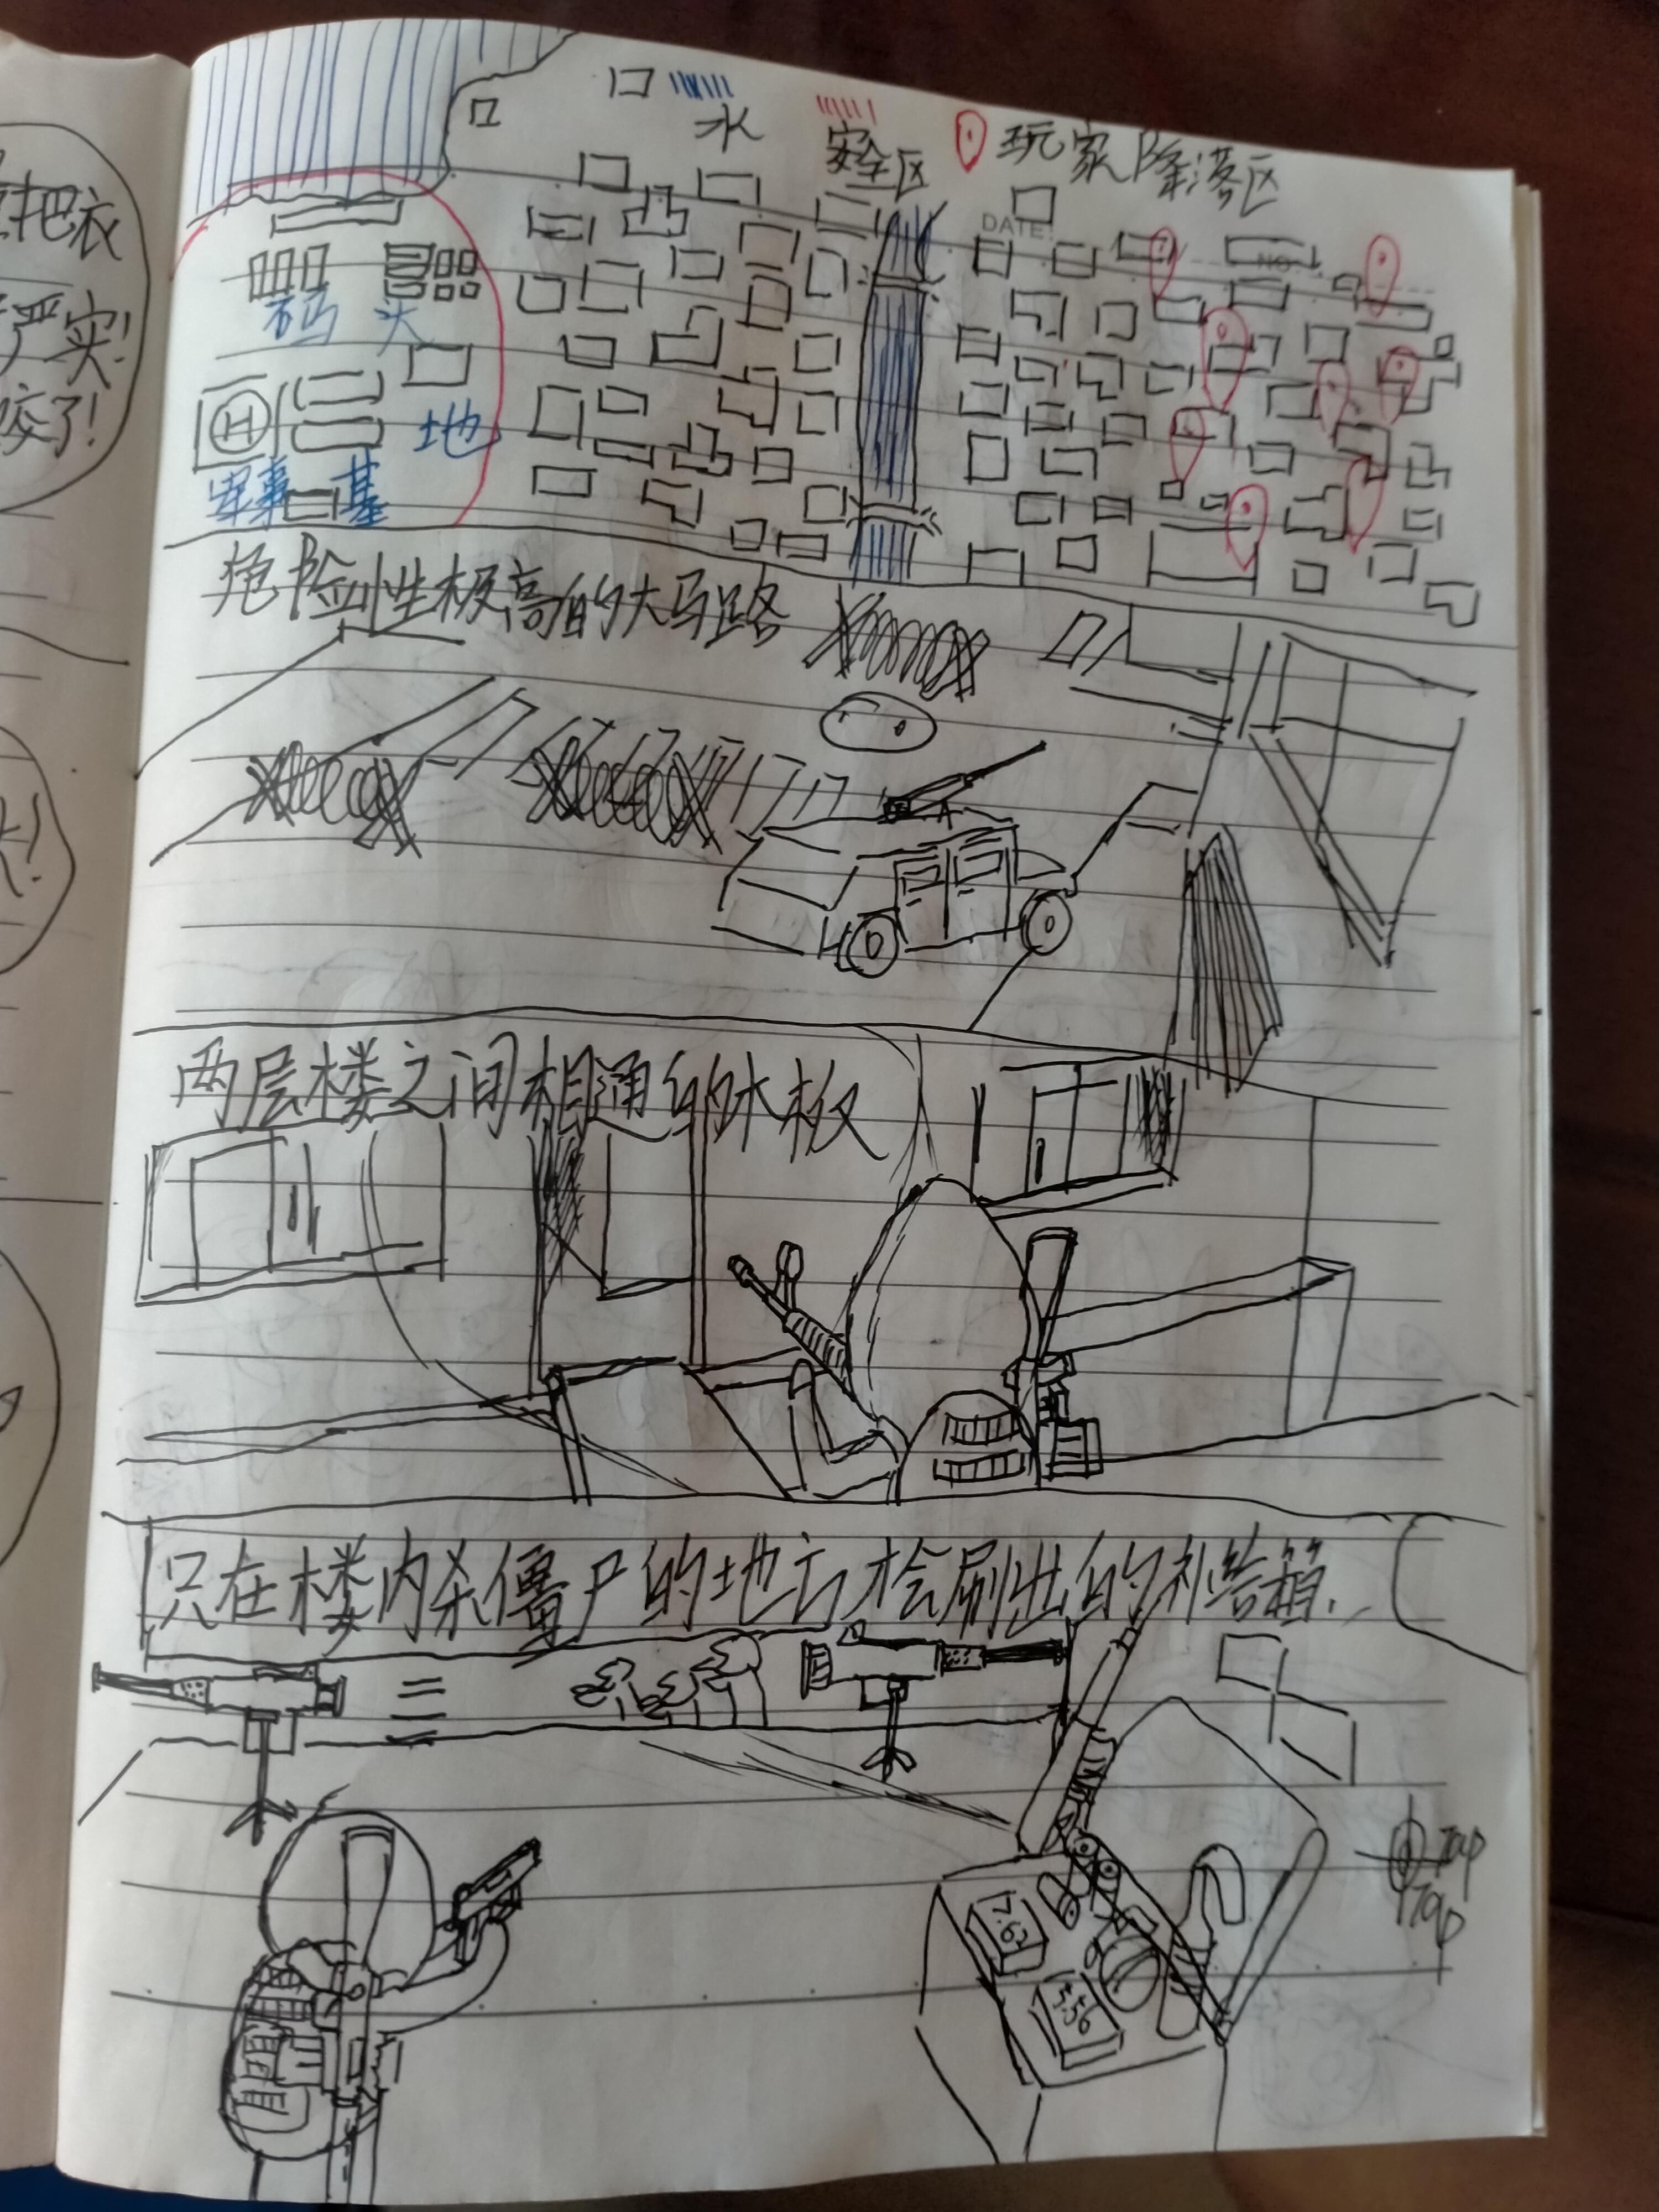 把衣
严实!
咬了!
水
安全区
玩家降落区
DATE:
NO
码头
H
地
军事基
危险性极高的大马路
两层楼之间相通的木板
只在楼内杀僵尸的地方才会刷出的补给箱.
7.62
5.56